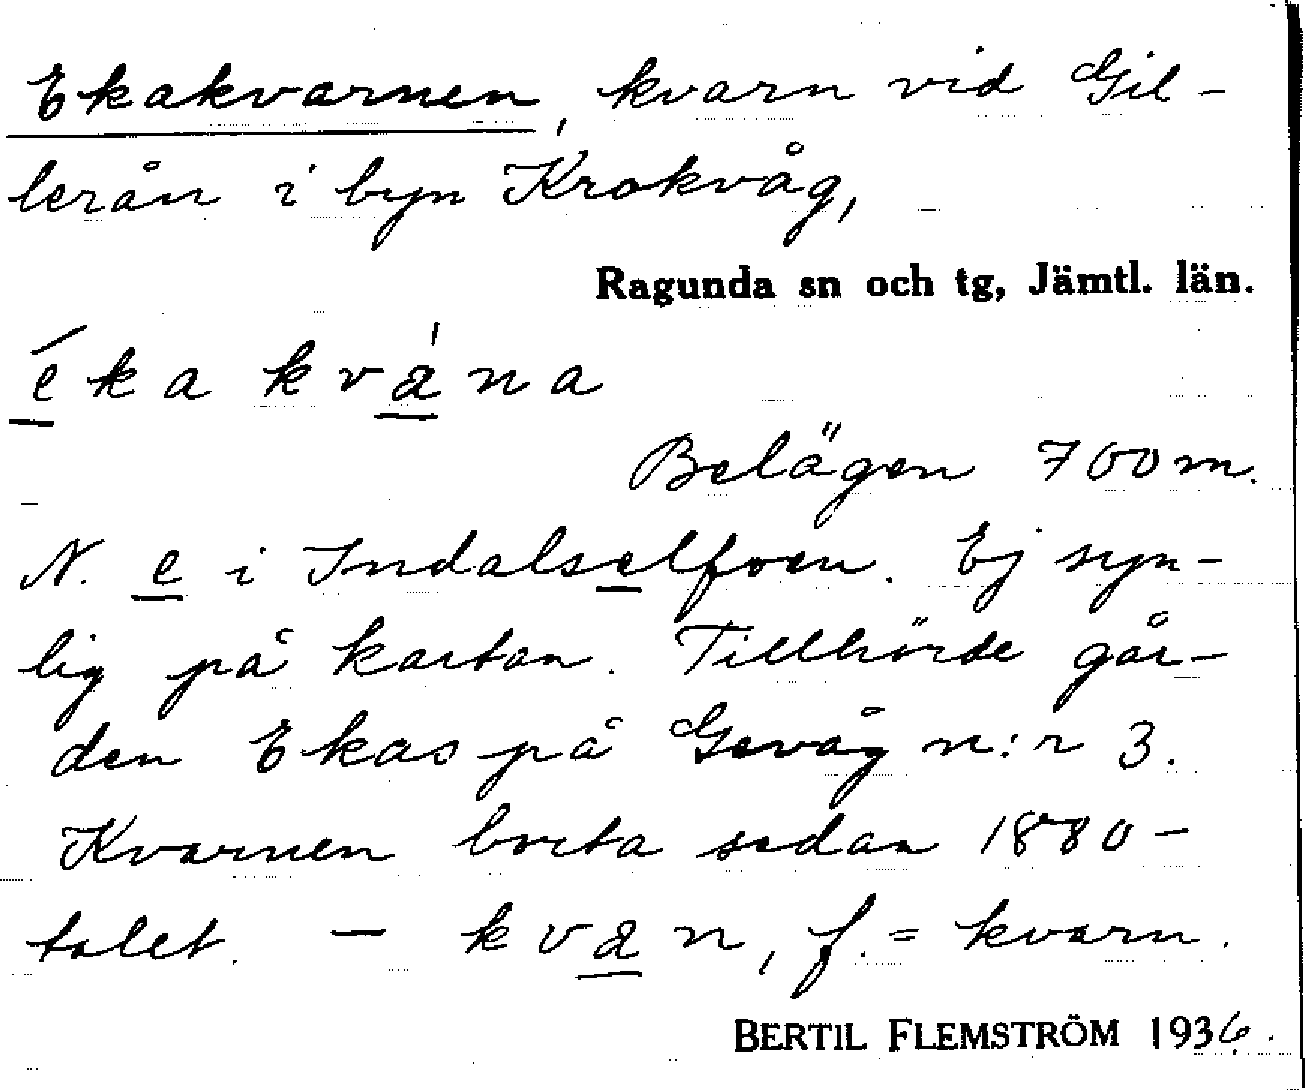 Ekakvarnen, kvarn vid Gil-
lerån i byn Krokvåg,
Ragunda sn och tg, Jämtl. län.
éka kvána
Belägen 700 m.
N. e i Indalselfven. Ej syn-
lig på kartan. Tillhörde går-
den Ekas på Gevåg n:r 3.
Kvarnen borta sedan 1880-
talet. – kvan, f. = kvarn.
BERTIL FLEMSTRÖM 1936.